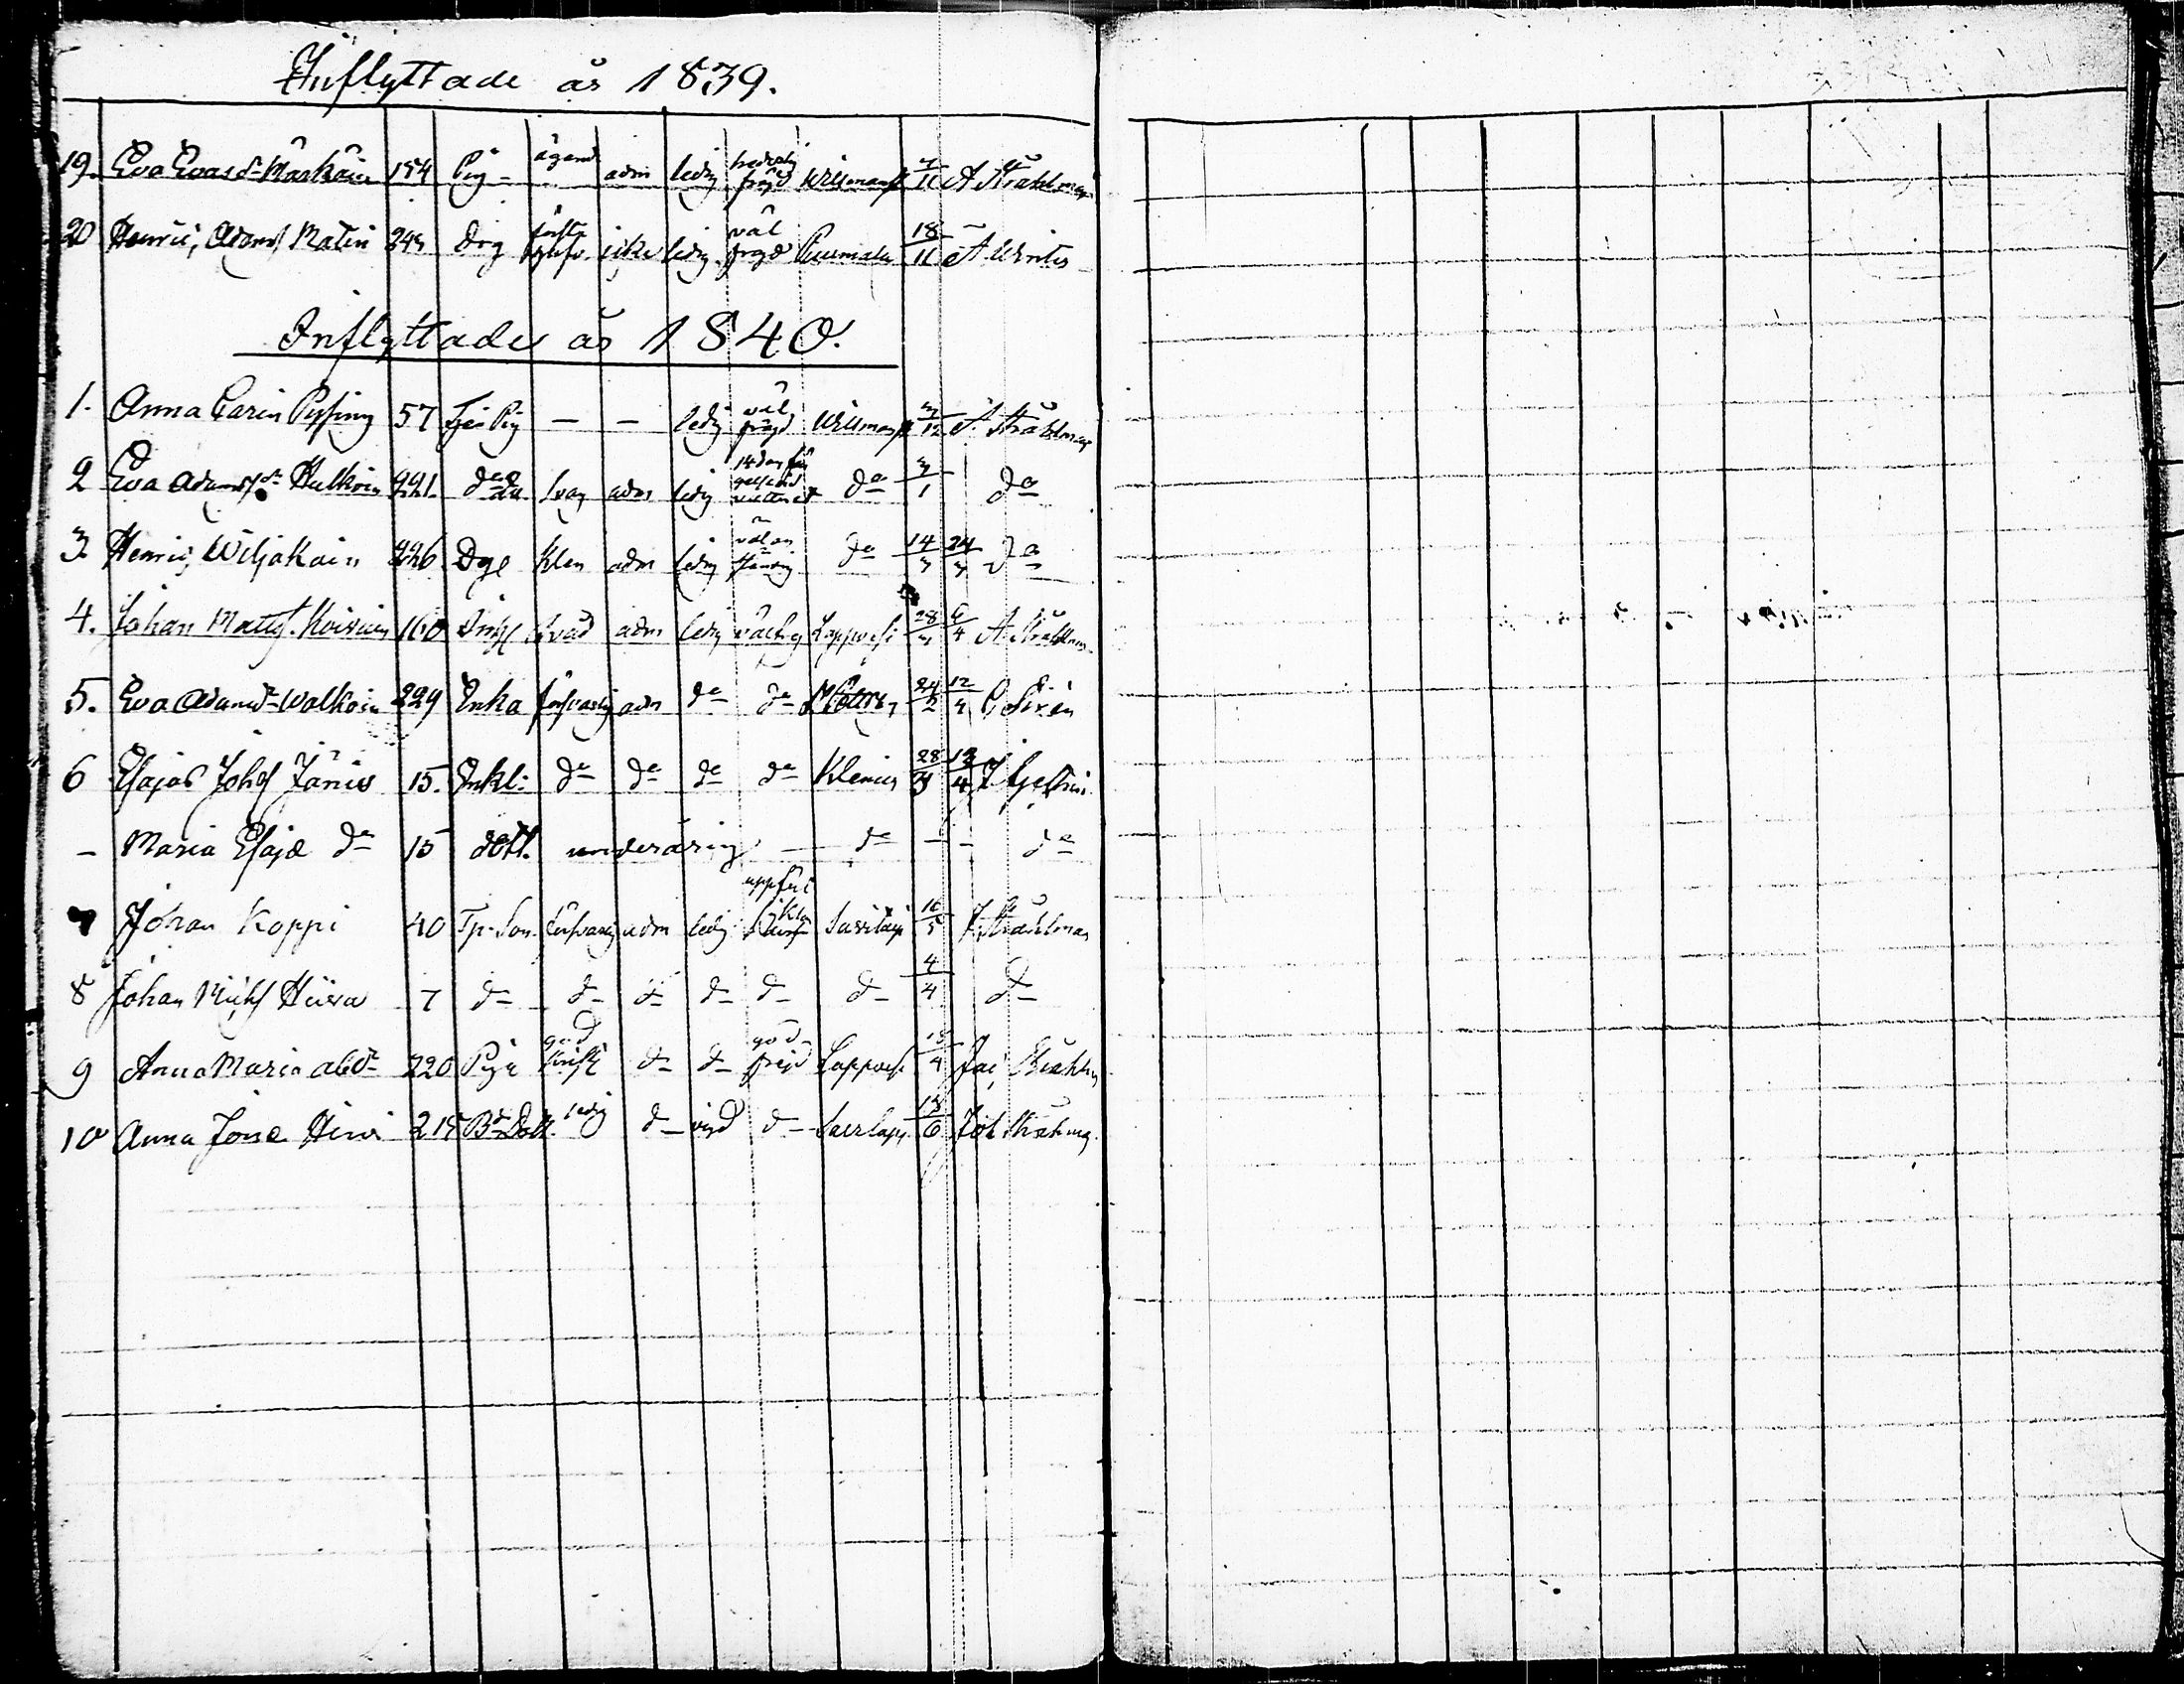 Inflyttade år 1839.
19. Eva Evasdr Markain 154 Pig ägand adm ledig hederlig frägd Willmanst 7/11 A Stråhlman
20 Henric, Adamss Matin 243 drg icke ledig väl fregd Puumala 18/11 A. Winter
Inflyttade år 1840.
1. Anna Carin Pessing 57 Pig — — ledig väl frägd Willmanst 3/12 Stråhlman
2 Eva Adamsdr Hulkoin 221 do svag adm ledig do 3/1 do
3. Henric, Wiljakain 226 Dge klen adm ledig välan ständig do 14/3 24/3 do
4. Johan Matts. Koivuin 160 Inhs adm ledig Lappvesi 28/3 6/4 A Stråhlman
5. Eva Adamsdr Walkoin 229 Enka försvarlig adm do do 24/2 12/4 Sirén
6 Esajas Johss Jänis 15. Enkl: do do do do Klemis 28/3 13/4
– Maria Esajæ do 15 dott. underårig — do – – do
7 Johan Koppi 40 Tp. Son försvarlig adm ledig uppför Savitaip 16/5 J. Stråhlman
8 Johan Michs Hiisa 7 do do do do do do 4/4 do
9 Anna Maria Abdr 220 Piga god krisk do do god frejd Lappvesi 15/4 Stråhlm
10 Anna Jonæ Hirvi 215 Bd Dott. ledig do vigd do Savitaip 13/6 Joh Stråhlman